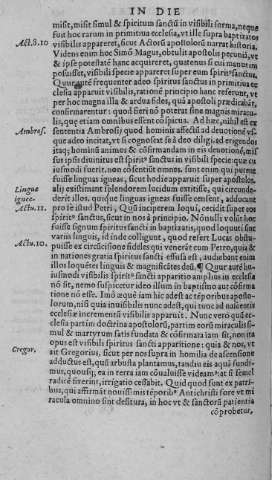 IN DIE
misit, misit simul & spiritum sanctũ in visibili forma, neque
fuit hoc rarum in primitiua ecclesia, vt ille supra baptizatos
Act.8.10 visibilis appareret, sicut Actorũ apostolorũ narrat historia.
Videns enim hoc Simõ Magus, obtulit apostolis pecuniã, vt
& ipse potestatẽ hanc acquireret, quatenus si cui manus im
posuisset, visibili specie appareret is per eum spiritus sanctus.
frequenter adeo spiritus sanctus in primitiua ec
clesia apparuit visibilis, rationẽ principio hanc referunt, vt
per hoc magna illa & ardua fides, quã apostoli prædicabãt,
confirmarentur: quod fieri nõ poterat sine magnis miracu
lis, quæ etiam omnibus essent conspicua. Ad hæc, nihil est ex
Ambros. sententia Ambrosij quod hominis affectũ ad deuotionẽ vs
que adeo incitat, vt si cognoscat se à deo diligi. ad erigendos
itaque hominũ animos & cõfirmandam in eis deuotionẽ, mis
sus ipsis diuinitus est spiritus sanctus in visibili specie quæ eis
iusmodi fuerit, non cõsentiũt omnes. sunt enim qui putent
Lingue fuisse linguas igneas, sicut hodie apparuit super apostolos.
igneæ. alij existimant splendorem lucidum extitisse, qui circunde-
derit illos. quod
Actu.11. pro se illud Petri, Quũ inceperem loqui, cecidit super eos
spiritus sanctus, sicut in nos à principio. Nõnulli volũt hoc
fuisse signum spiritus sancti in baptizatis, quod loquuti sint
Actu.10. varijs linguis, id inde colligunt, quod refert Lucas obstu-
puisse ex circuncisione fideles qui venerãt cum Petro, quia &
in nationes gratia spiritus sancti effusa est, audiebant enim
illos loquẽtes linguis & magnificãtes deũ. ¶ Quur autẽ hu-
iusmodi visibilis spiritus sancti apparitio amplius in ecclesia
nõ sit, nemo suspicetur ideo illum in baptismo aut cõfirma
tione nõ esse. Imò æquè iam hic adest ac tẽporibus aposto-
lorum, nisi quia inuisibilis nunc adest, qui tunc ad nascentis
ecclesiæ incrementũ visibilis apparuit. Nunc verò quũ ec-
clesia partim doctrina apostolorũ, partim eorũ miraculis si-
mul & martyrum satis fundata & cõfirmata iam sit, non ita
opus est visibili spiritus sancti apparitione: quia & nos, vt
Gregor. ait Gregorius, sicut per nos supra in homilia de ascensione
adductus est, quũ arbusta plantamus, tandiu eis aquã fundi-
mus, quousque ea in terra iam cõualuisse videamus: at si semel
radicẽ fixerint, irrigatio cessabit. Quid quod sunt ex patri-
bus, qui affirmãt nouissimis tẽporibus Antichristi fore vt mi
racula omnino sint desitura, in hoc vt & sanctorũ patientia
cõprobetur,